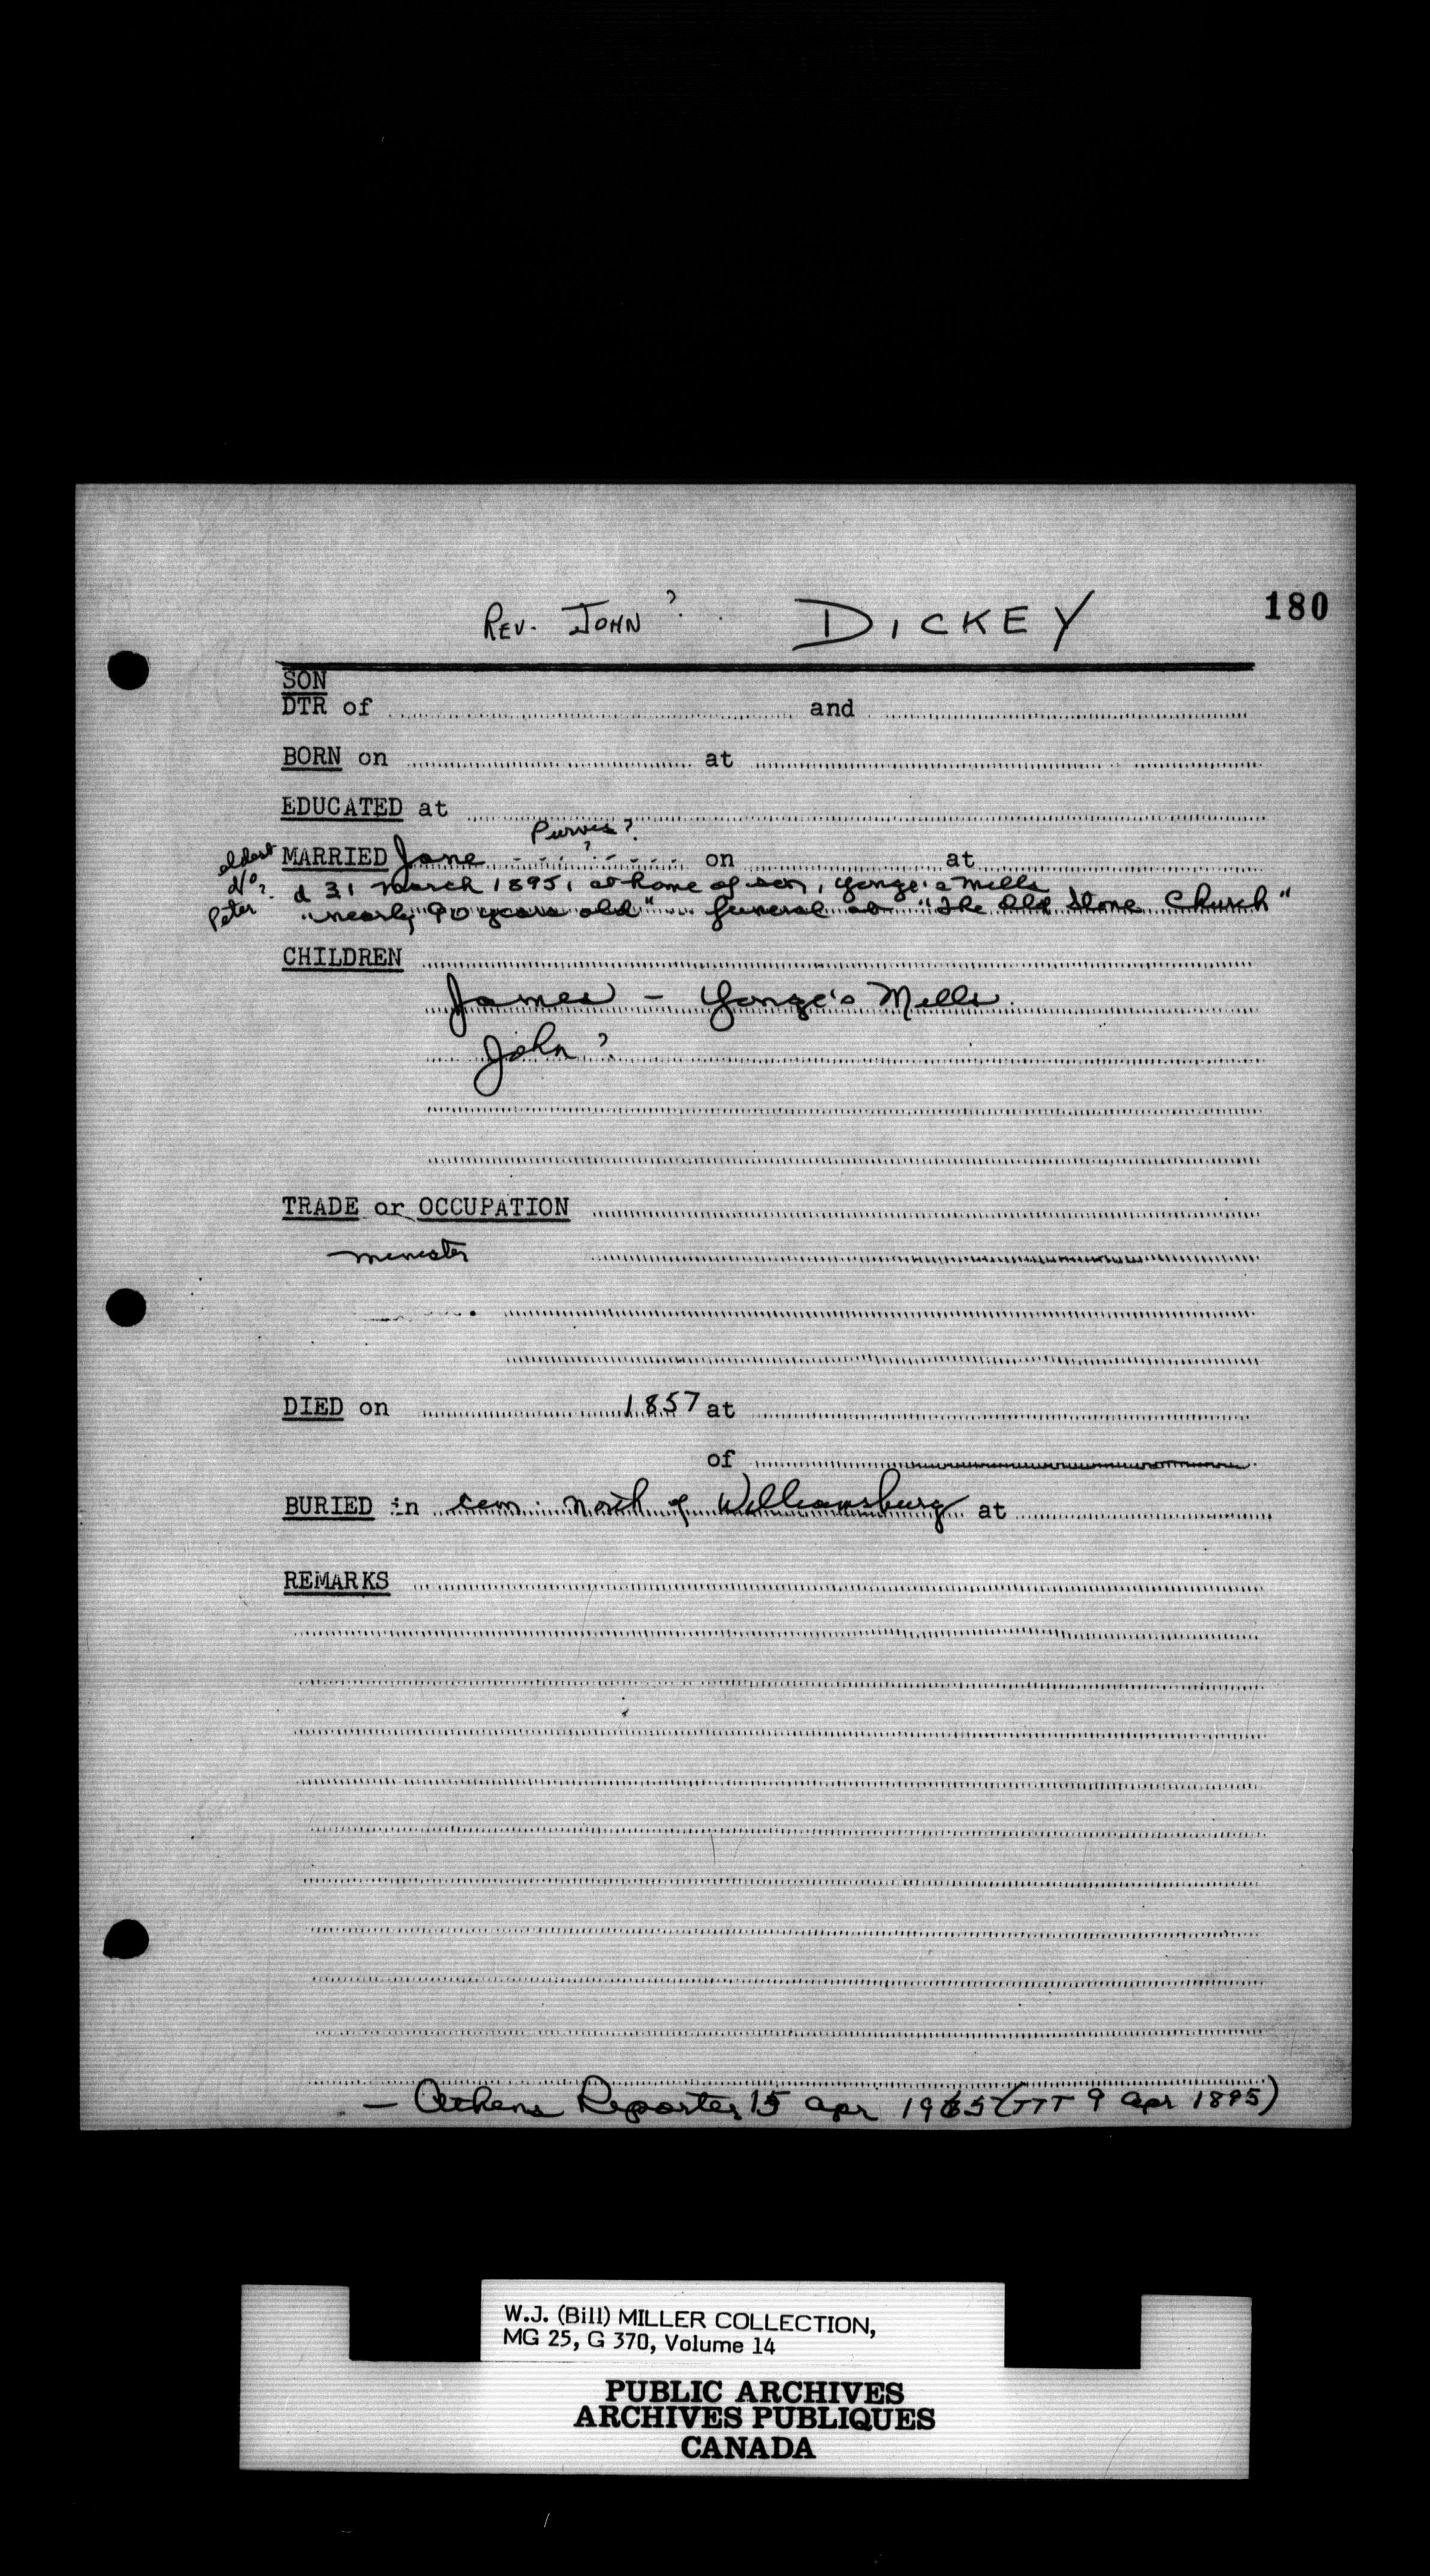 180
REV. JOHN ? DICKEY
SON
DTR of and
BORN on at
EDUCATED at
Purvis?
MARRIED Jane - - - ? - - - - on at
eldest
No?
Peter
d 31 March 1895, at home of son, Yonge's Mills
"nearly 90 years old" funeral at "The Old Stone Church"
CHILDREN
James - Yonge's Mills
John ?
TRADE or OCCUPATION
minister
DIED on 1857 at
of
BURIED in cem. north of Williamsburg at
REMARKS
- Athens Reporter 15 Apr 1965 (TIT 9 Apr 1895)
W.J. (Bill) MILLER COLLECTION,
MG 25, G 370, Volume 14
PUBLIC ARCHIVES
ARCHIVES PUBLIQUES
CANADA